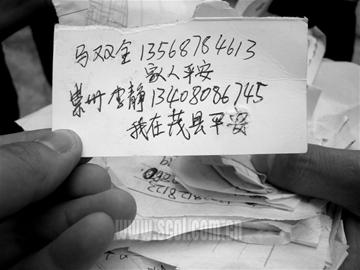 马双全13568784613
家人平安
崇州李静13408086745
我在茂县平安
www.scol.com.cn